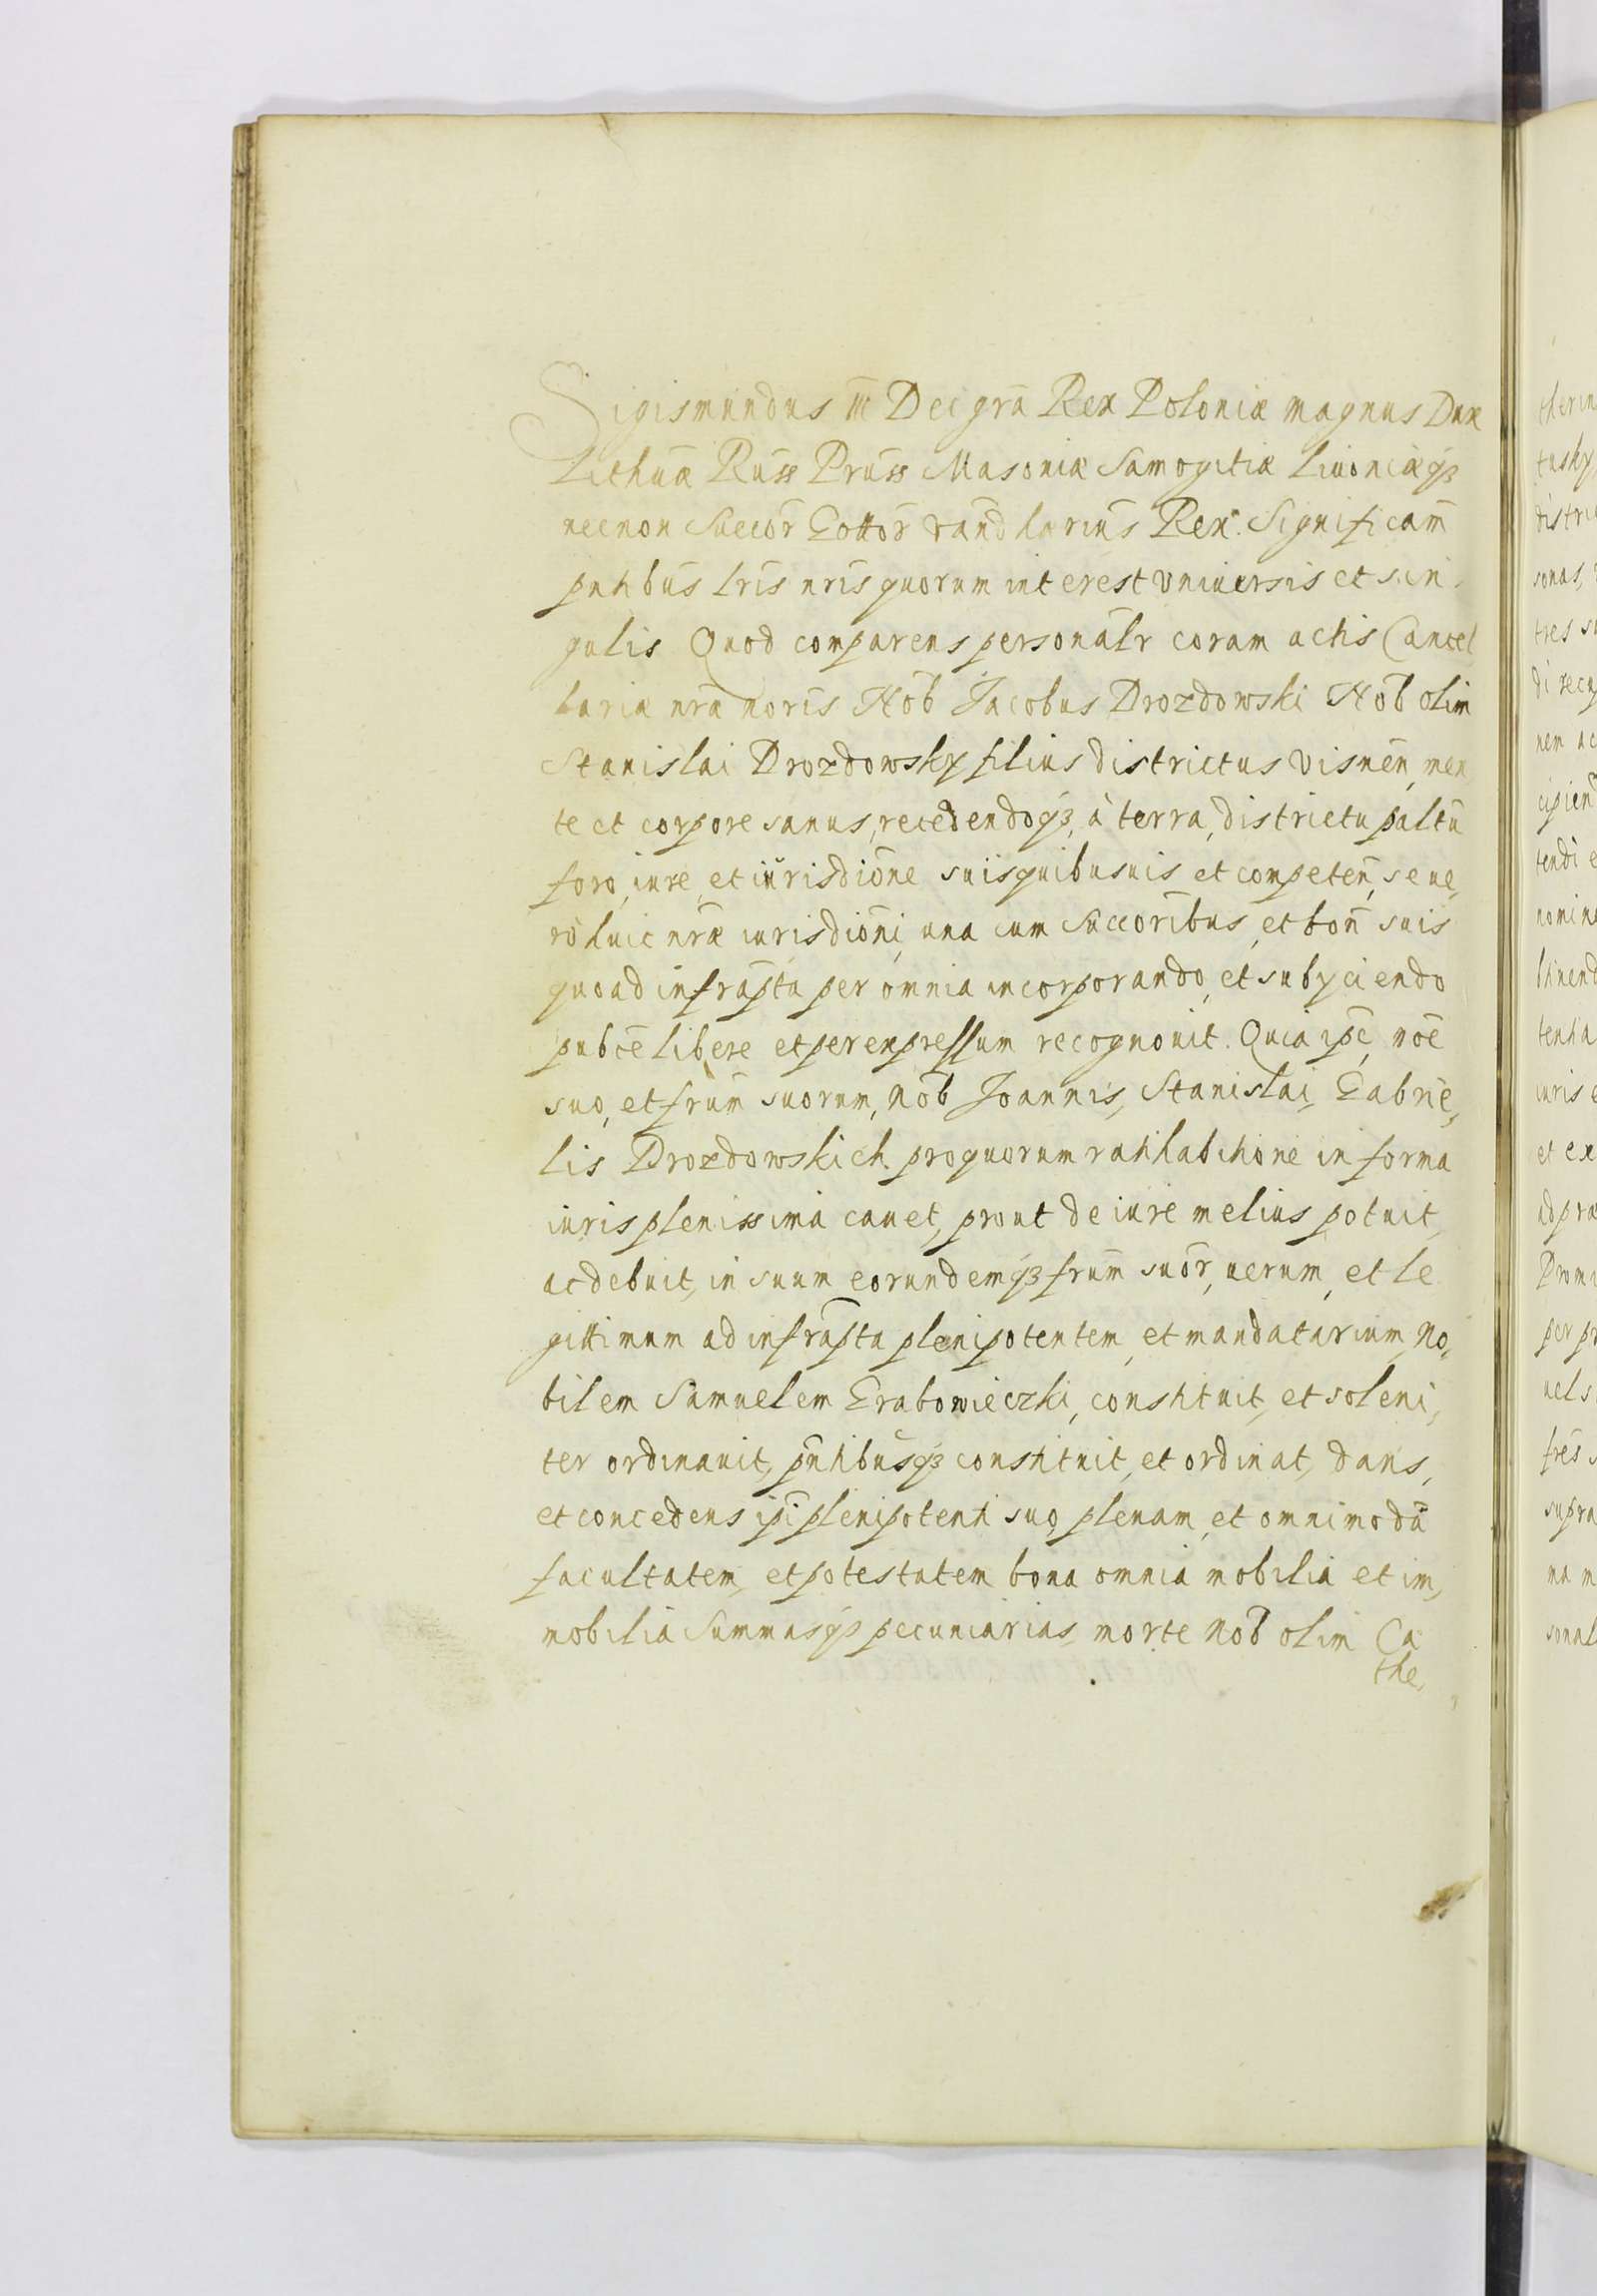 Sigismundus III Dei grã Rex Poloniæ magnus Dux
Lithuæ Russ Pruss Masoniæ Samogitiæ Liuoniæq3
necnon Suecor̃ Gottor̃ Vand larius Rex. Significam̃
pntibus lrĩs nrĩs quorum interest vniuersis et sin,
gulis Quod comparens personalr̃ coram actis Cancel
lariæ nræ̃ noris Nob̃ Jacobus Drozdowski Nob̃ olim
Stanislai Drozdowsky filius districtus Visneñ, men
te et corpore sanus, recedendoq3, à terra, districtu paltũ
foro, iure, et iurisdiõne suis quibusuis et competeñ, se ue,
rò huic nræ̃ iurisdiõni, una cum Succorĩbus, et boñ suis
quoad infrãpta per omnia incorporando, et subyciendo
pubcẽ libere et per expressum recognouit. Quia ipẽ, noẽ
suo, et frũm suorum, Nob̃ Joannis, Stanislai, Gabrie,
lis Drozdowskich, pro quorum ratihabitione in forma
iuris plenissima cauet, prout de iure melius potuit,
ac debuit, in suum eorundemq3 frũm suor̃, uerum, et le
gittimum ad infrãpta plenipotentem, et mandatarium No,
bilem Samuelem Grabowieczki, constituit, et soleni,
ter ordinauit, pñtibusq3 constituit, et ordinat, dans,
et concedens ipĩ plenipotenti suo, plenam, et omnimodã
facultatem, et potestatem bona omnia mobilia et im,
mobilia Summasq3 pecuniarias, morte Nob̃ olim Ca
the,